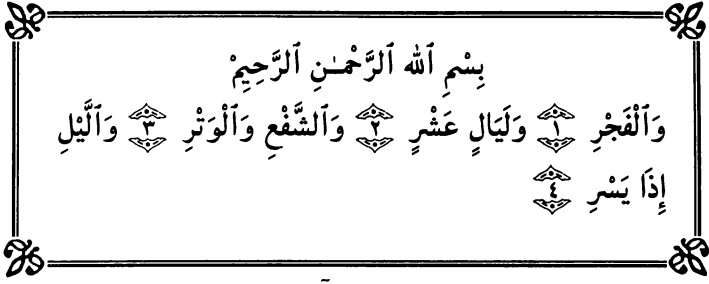 بِسْمِ ٱللَّهِ ٱلرَّحْمَـٰنِ ٱلرَّحِيمِْ
وَٱلْفَجْرِ ١ وَلَيَالٍ عَشْرٍ ٢ وَٱلشَّفْعِ وَٱلْوَتْرِ ٣ وَٱلَّيْلِ
إِذَا يَسْرِ ٤